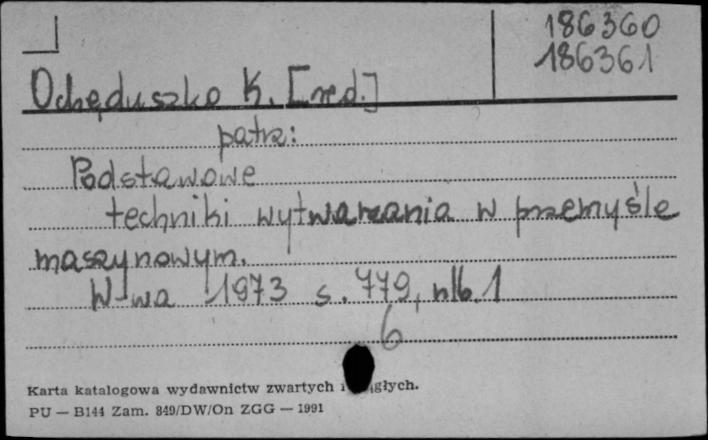 186360
186361
Ochęduszko K. [red.]
patrz:
Podstawowe
techniki wytwarzania w przemyśle
maszynowym.
W-wa 1973 s. 779, nlb. 1
6
Karta katalogowa wydawnictw zwartych i głych.
PU — B144 Zam. 849/DW/On ZGG — 1991